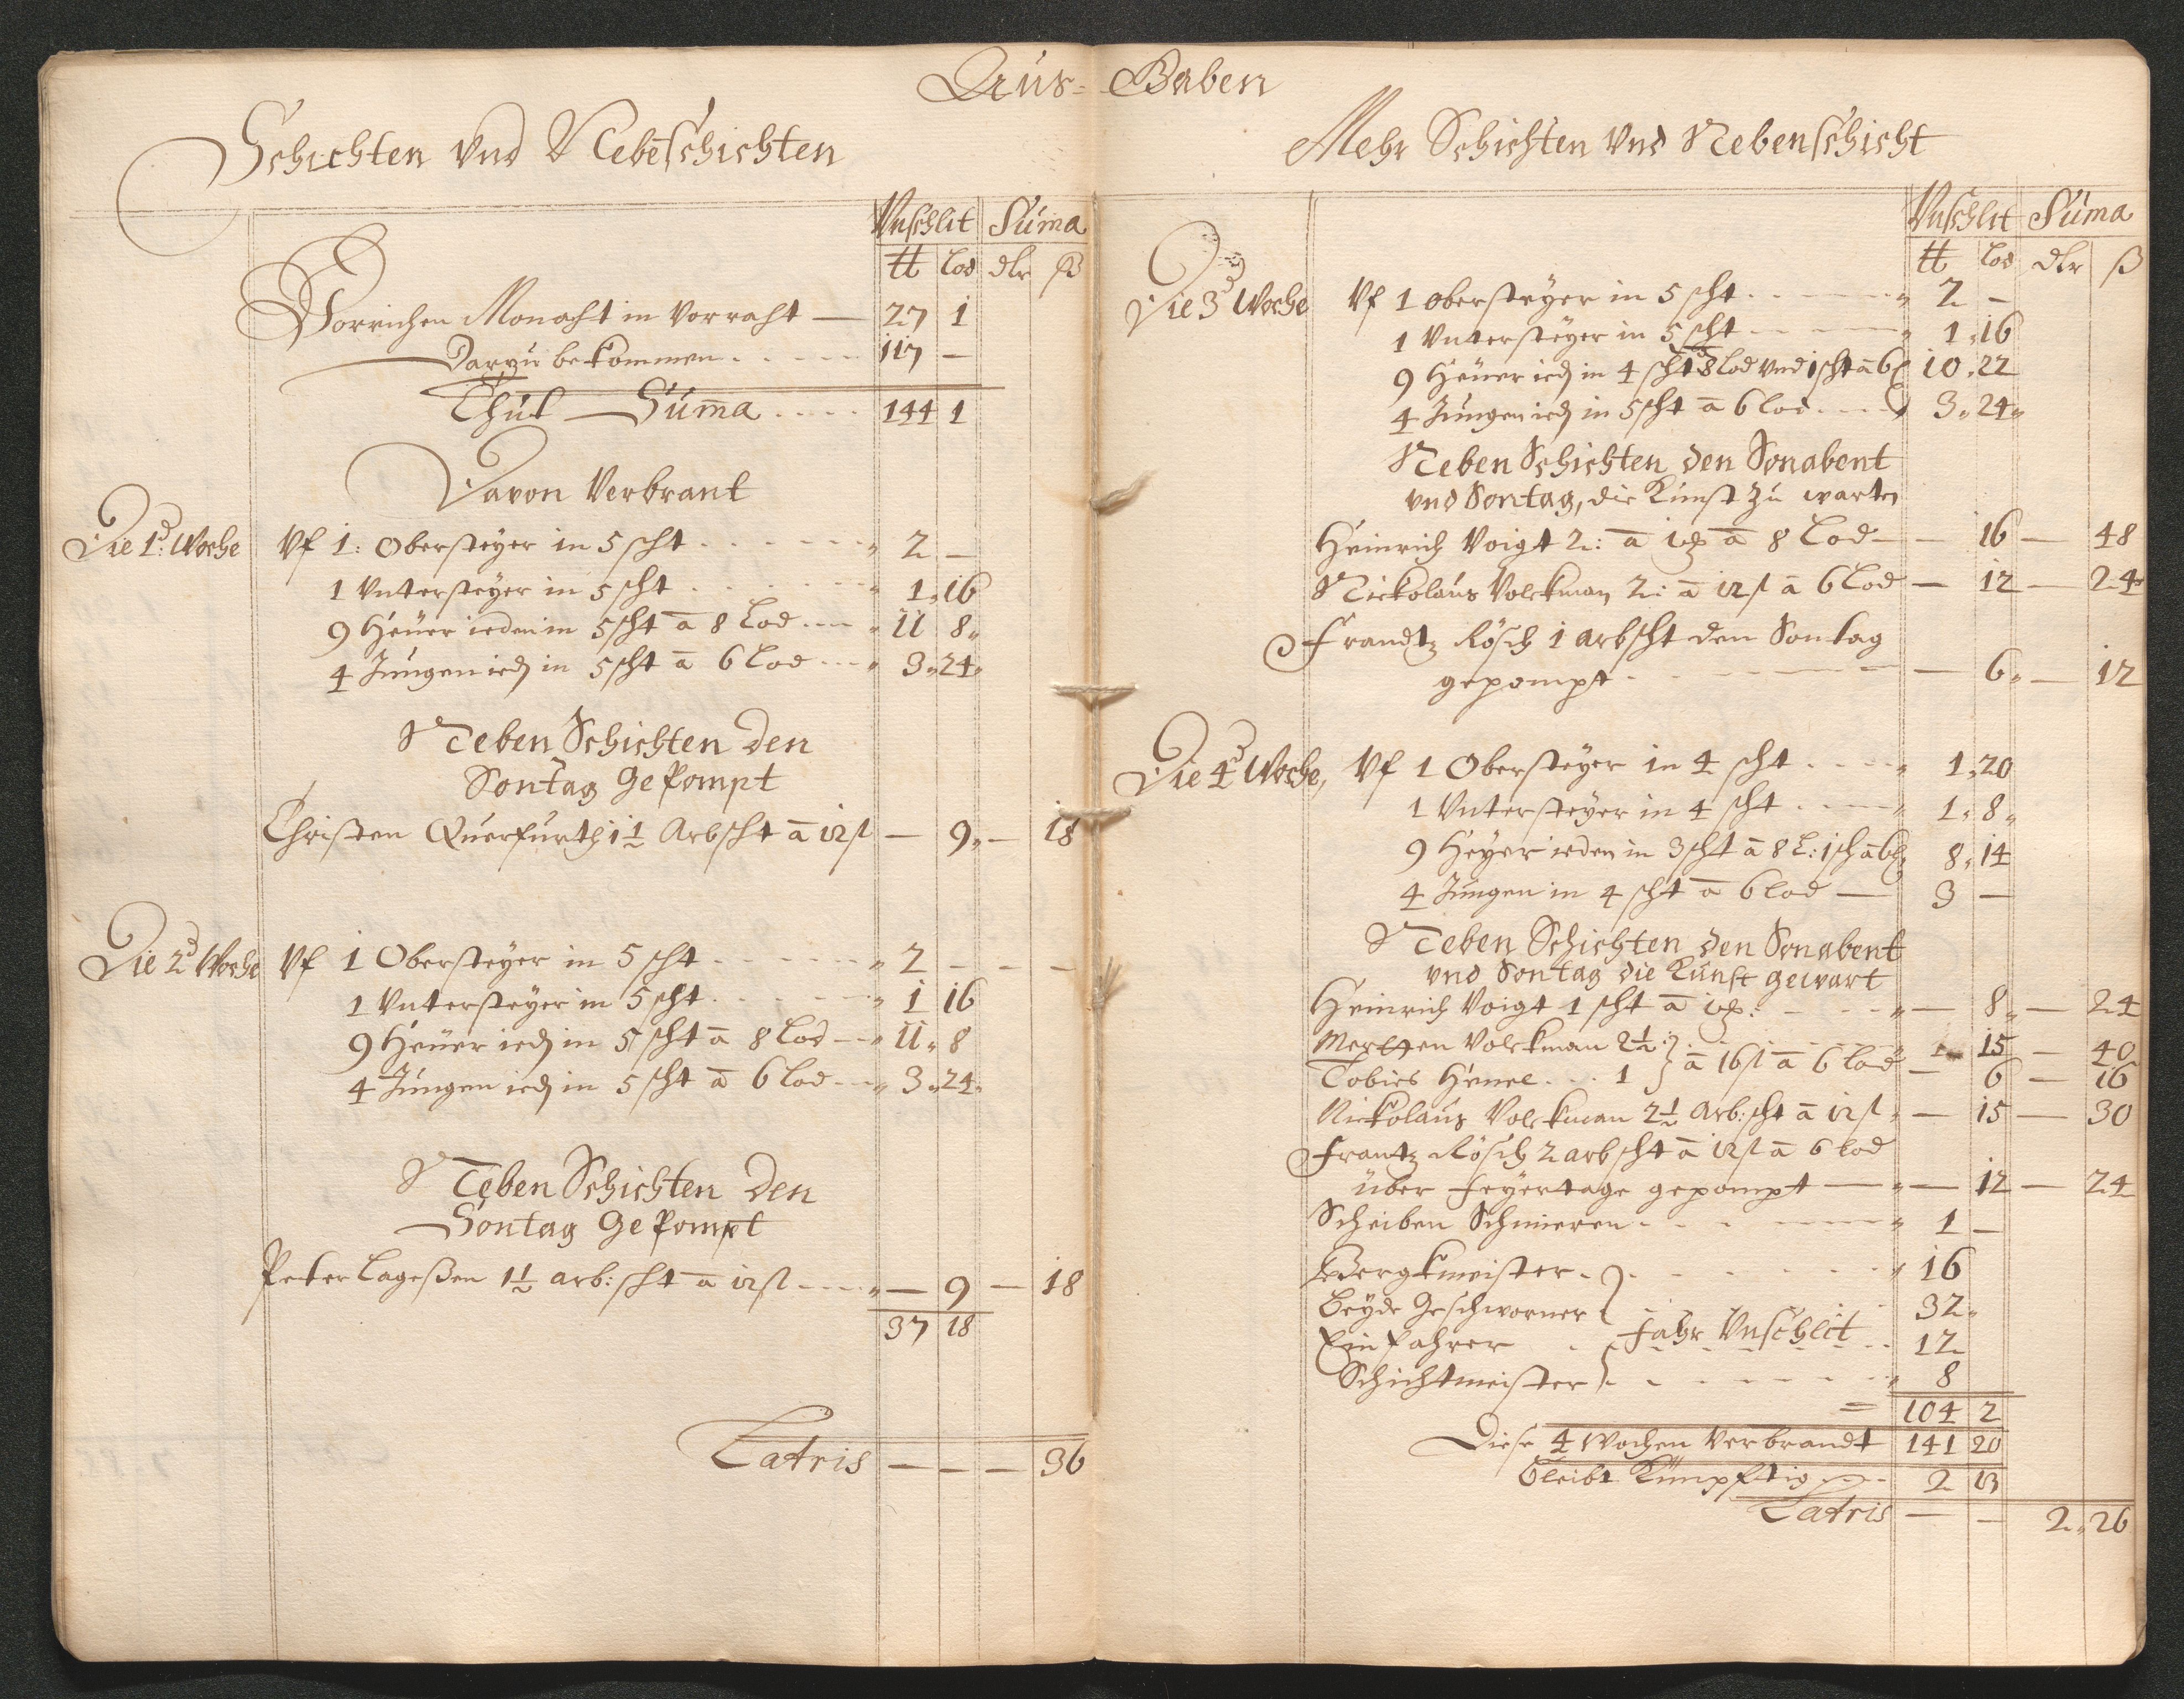 Aus= Gaben
Schichten Vnd Nebeschichten
Vnschlit Suma
tt Lod dlr ß
Vorrichen Monaht in Vorraht — 27 1
Darzu bekommen 117 —
Thut Suma 144 1
Davon Verbrant
Die 1t: Woche Vf 1: Obersteyer in 5 scht 2 —
1 Vntersteyer in 5 scht 1 16
9 Heuer ieden in 5 scht a 8 Lod 11 8
4 Jungen ied in 5 scht a 6 Lod 3 24
Neben Schichten den
Sontag Gepompt
Christen Querfurth 1 1/2 Arbscht a 12 ß — 9 — 18
Die 2t Woche Vf 1 Obersteyer in 5 scht 2 — — —
1 Vntersteyer in 5 scht 1 16
9 Heuer ied in 5 scht a 8 Lod 11 8
4 Jungen ied in 5 scht a 6 Lod 3 24
Neben Schichten den
Sontag Gepompt
Peter Lageßen 1 1/2 arb: scht a 12 ß — 9 — 18
37 18
Latris — — — 36
Mehr Schichten Vnd Nebenschicht
Vnschlit Suma
tt Lod dlr ß
Die 3t Woche Vf 1 obersteyer in 5 scht 2 —
1 Vntersteyer in 5 scht 1 16
9 Heuer ied in 4 scht 8 Lod vnd 1 scht a 6 10 22
4 Jungen ied in 5 scht a 6 Lod 3 24
Neben Schichten den Sonabent
vnd Sontag, die Kunst zu warten
Heinrich Voigt 2: a a 8 Lod — 16 — 48
Nickolaus Volckman 2: a 12 ß a 6 Lod — 12 — 24
Frandtz Rösch 1 arbscht den Sontag
gepompt — 6 — 12
Die 4t Woche, Vf 1 Obersteyer in 4 scht 1 20
1 Vntersteyer in 4 scht 1 8
9 Heyer ieden in 3 scht a 8 L: 1 sch a 6 8 14
4 Jungen in 4 scht a 6 Lod — 3 —
Neben Schichten den Sonabent
vnd Sontag die Kunst gewart
Heinrich Voigt 1 scht a — 8 — 24
Merten Volckman 2 1/2 15 — 40
Tobies 1 } a 16 ß a 6 Lod — 6 — 16
Nickolaus Volckman 2 1/2 Arb: scht a 12 ß — 15 — 30
Frantz Rösch 2 arbscht a 12 ß a 6 Lod
über Feyertage gepompt — 12 — 24
Scheiben Schmieren 1 —
Bergkmeister 16
Beyde Geschworner 32
Einfahrer Fahr Vnschlit 12
Schichtmeister 8
= 104 2
Diese 4 Wochen Verbrandt 141 20
Bleibt Künpfftig 2 13
Latris — — 2 26